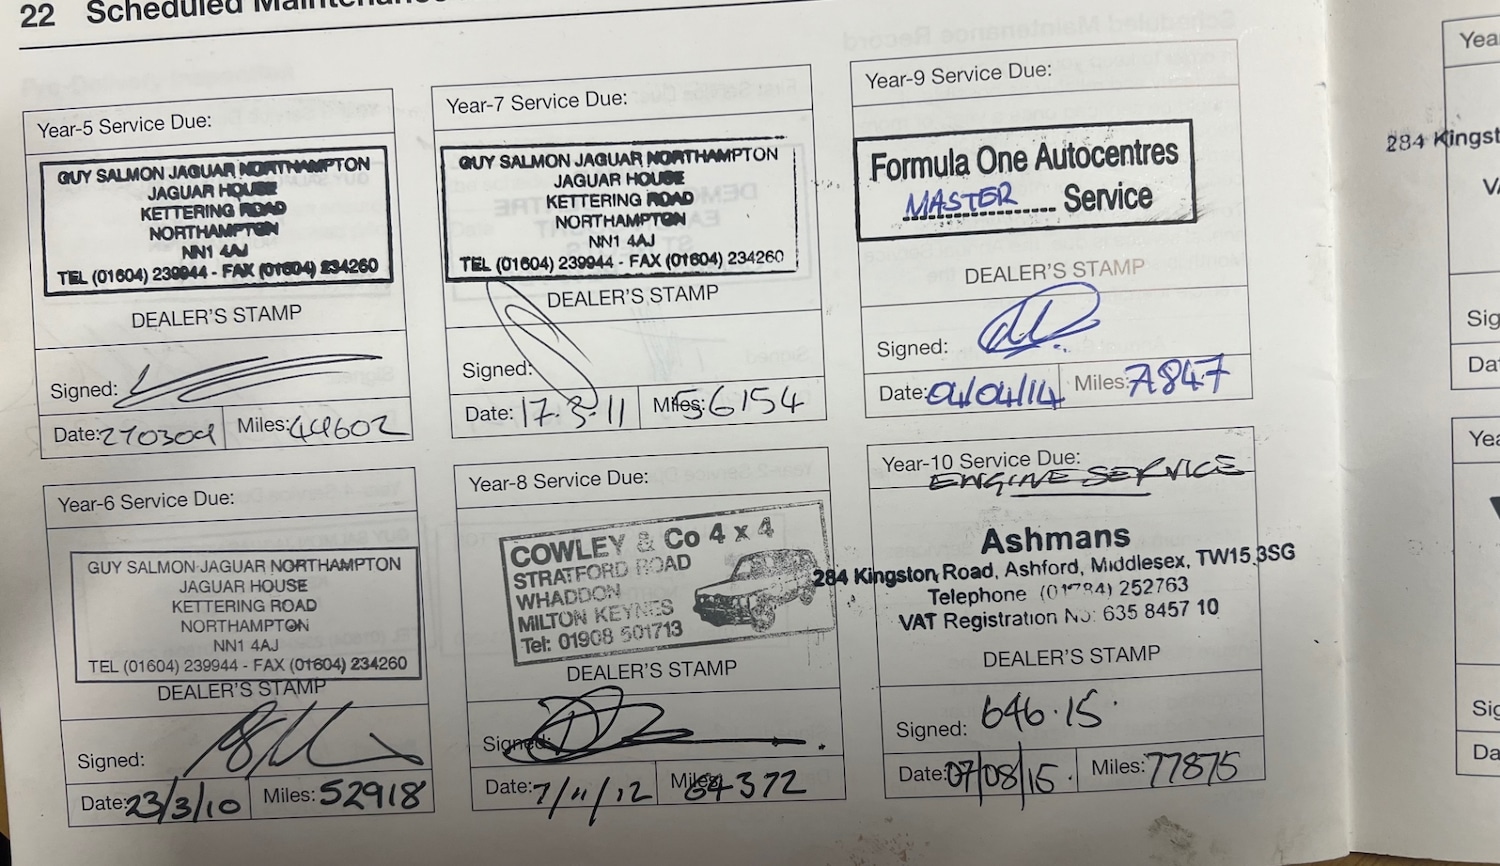 22 Scheduled Maintenance
Year-5 Service Due:
GUY SALMON JAGUAR NORTHAMPTON
JAGUAR HOUSE
KETTERING ROAD
NORTHAMPTON
NN1 4AJ
TEL (01604) 239944 - FAX (01604) 234260
DEALER'S STAMP
Signed:
Date: 270309 Miles: 44602
Year-6 Service Due:
GUY SALMON JAGUAR NORTHAMPTON
JAGUAR HOUSE
KETTERING ROAD
NORTHAMPTON
NN1 4AJ
TEL (01604) 239944 - FAX (01604) 234260
DEALER'S STAMP
Signed:
Date: 23/3/10 Miles: 52918
Year-7 Service Due:
GUY SALMON JAGUAR NORTHAMPTON
JAGUAR HOUSE
KETTERING ROAD
NORTHAMPTON
NN1 4AJ
TEL (01604) 239944 - FAX (01604) 234260
DEALER'S STAMP
Signed:
Date: 17.3.11 Miles: 56154
Year-8 Service Due:
COWLEY & Co 4 x 4
STRATFORD ROAD
WHADDON
MILTON KEYNES
Tel: 01908 501713
DEALER'S STAMP
Signed:
Date: 7/11/12 Miles: 64372
Year-9 Service Due:
Formula One Autocentres
MASTER Service
DEALER'S STAMP
Signed:
Date: 04/04/14 Miles: 7A847
Year-10 Service Due:
ENGINE SERVICE
Ashmans
284 Kingston Road, Ashford, Middlesex, TW15 3SG
Telephone (01784) 252763
VAT Registration No: 635 8457 10
DEALER'S STAMP
Signed: 646.15
Date: 07/08/15. Miles: 77875
Yea
284 Kingst
VA
Sig
Da
Yea
Sig
Da